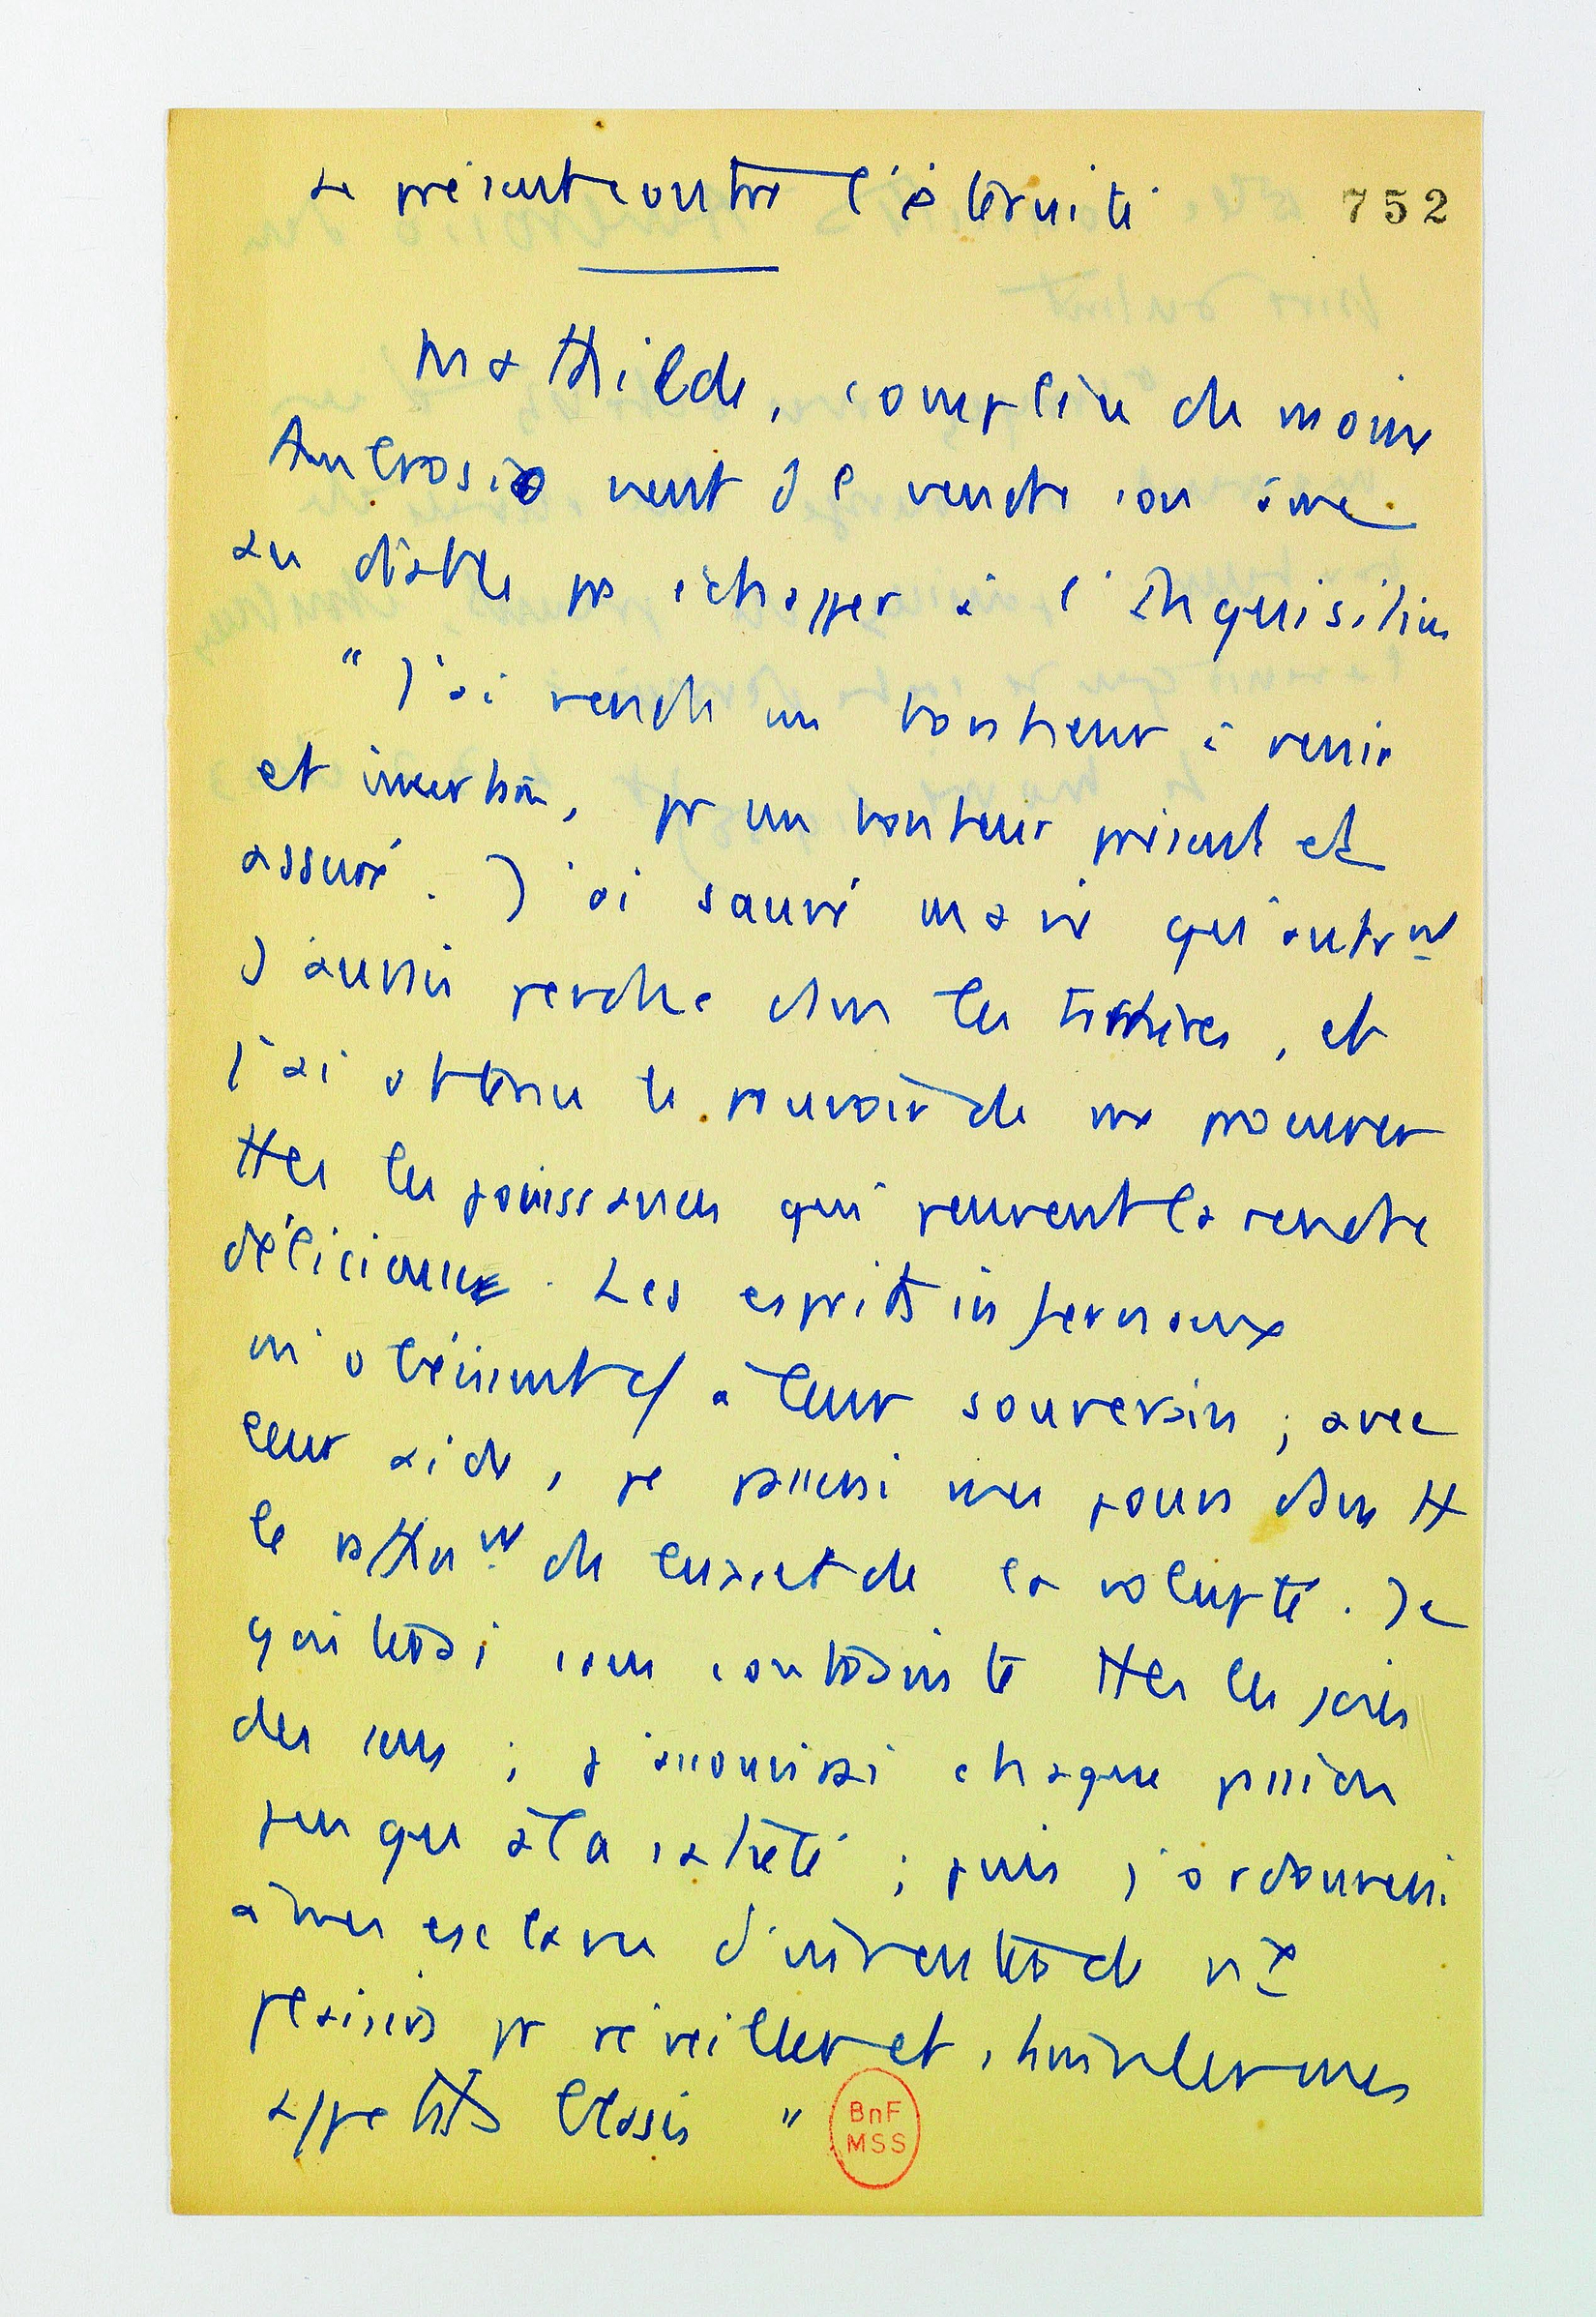 Le présent contre l'éternité
752
Mathilde, complice du moine
Ambrosio vient de vendre son âme
au diable pr échapper à l'Inquisition
" J'ai vendu un bonheur à venir
et incertain, pr un bonheur présent et
assuré. J'ai sauvé ma vie qu'autrnt
j'aurais perdue dans les tortures, et
j'ai obtenu le pouvoir de me procurer
ttes les jouissances qui peuvent la rendre
délicieuse. Les esprits infernaux
m'obéissent c/ à leur souverain ; avec
leur aide, je passerai mes jours dans tt
le raffinnt du luxe et de la volupté. Je
goûterai sans contrainte ttes les joies
des sens ; j'assouvirai chaque passion
jusqu'à la satiété ; puis j'ordonnerai
à mes esclaves d'inventer de nx
plaisirs pr réveiller et stimuler mes
appétits blasés "
BnF
MSS